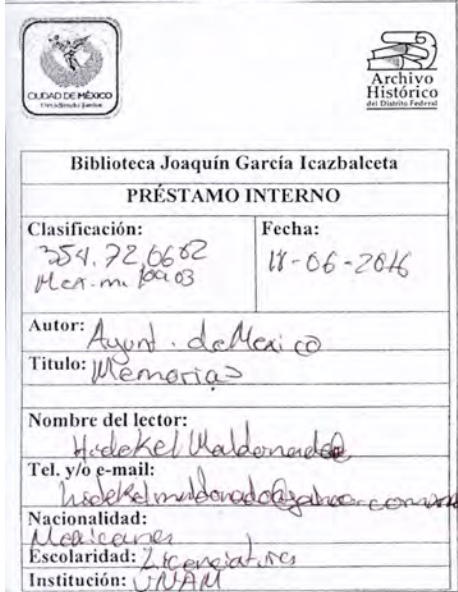 CIUDAD DE MÉXICO
Decidiendo Juntos
Archivo
Histórico
del Distrito Federal
Biblioteca Joaquín García Icazbalceta
PRÉSTAMO INTERNO
Clasificación:
354.720602
Fecha:
18-06-2016
Autor: Ayunt. de Mexico
Titulo: Memorias
Nombre del lector:
Hidekel Maldonado
Tel. y/o e-mail:
Nacionalidad:
Mexicana
Escolaridad: Licenciatura
Institución: UNAM